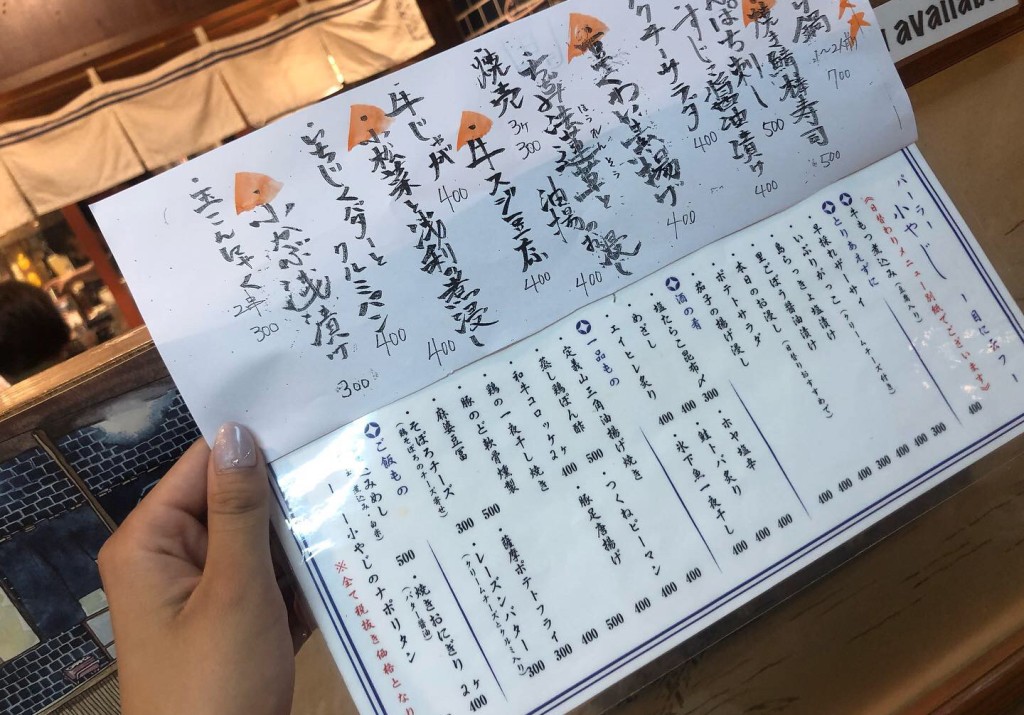 available
鍋
1~2人前
700
焼き鯖棒寿司
500
ぱち刺し
500
醤油漬け
400
クチーサラダ
400
ちくわ磯辺揚げ
400
油揚のお浸し
400
焼売
3ヶ
300
牛スジ豆腐
400
牛じゃが
400
小松菜と浅利の煮浸し
400
いちじくバターとクルミパン
400
小かぶ浅漬け
300
玉こんにゃく
2串
300
パーラー小やじ
一日にュフー
(日替わりメニュー別紙でございます)
牛もつ煮込み
400
とりあえずに
手採れザーサイ
300
いぶりがっこ(クリームチーズ付き)
400
島らっきょ塩漬け
400
里ごぼう醤油漬け
300
本日のお浸し(日替わおすすめ)
400
ポテトサラダ
400
茄子の揚げ浸し
400
酒の肴
塩たらこ昆布〆
300
めざし
400
エイヒレ炙り
400
ホヤ塩辛
400
鮭トバ炙り
400
氷下魚一夜干し
400
一品もの
定義山三角油揚げ焼き
500
蒸し鶏ぽん酢
400
和牛コロッケ2ヶ
鶏の一夜干し焼き
豚のど軟骨燻製
麻婆豆腐
500
そぼろチーズ
300
つくねピーマン
400
豚足唐揚げ
薩摩ポテトフライ
レーズンバター
(クリームチーズとクルミ入り)
ご飯もの
こみめし
500
小やじのナポリタン
焼きおにぎり 2ヶ
(バター醤油)
400
※全て税抜き価格となり